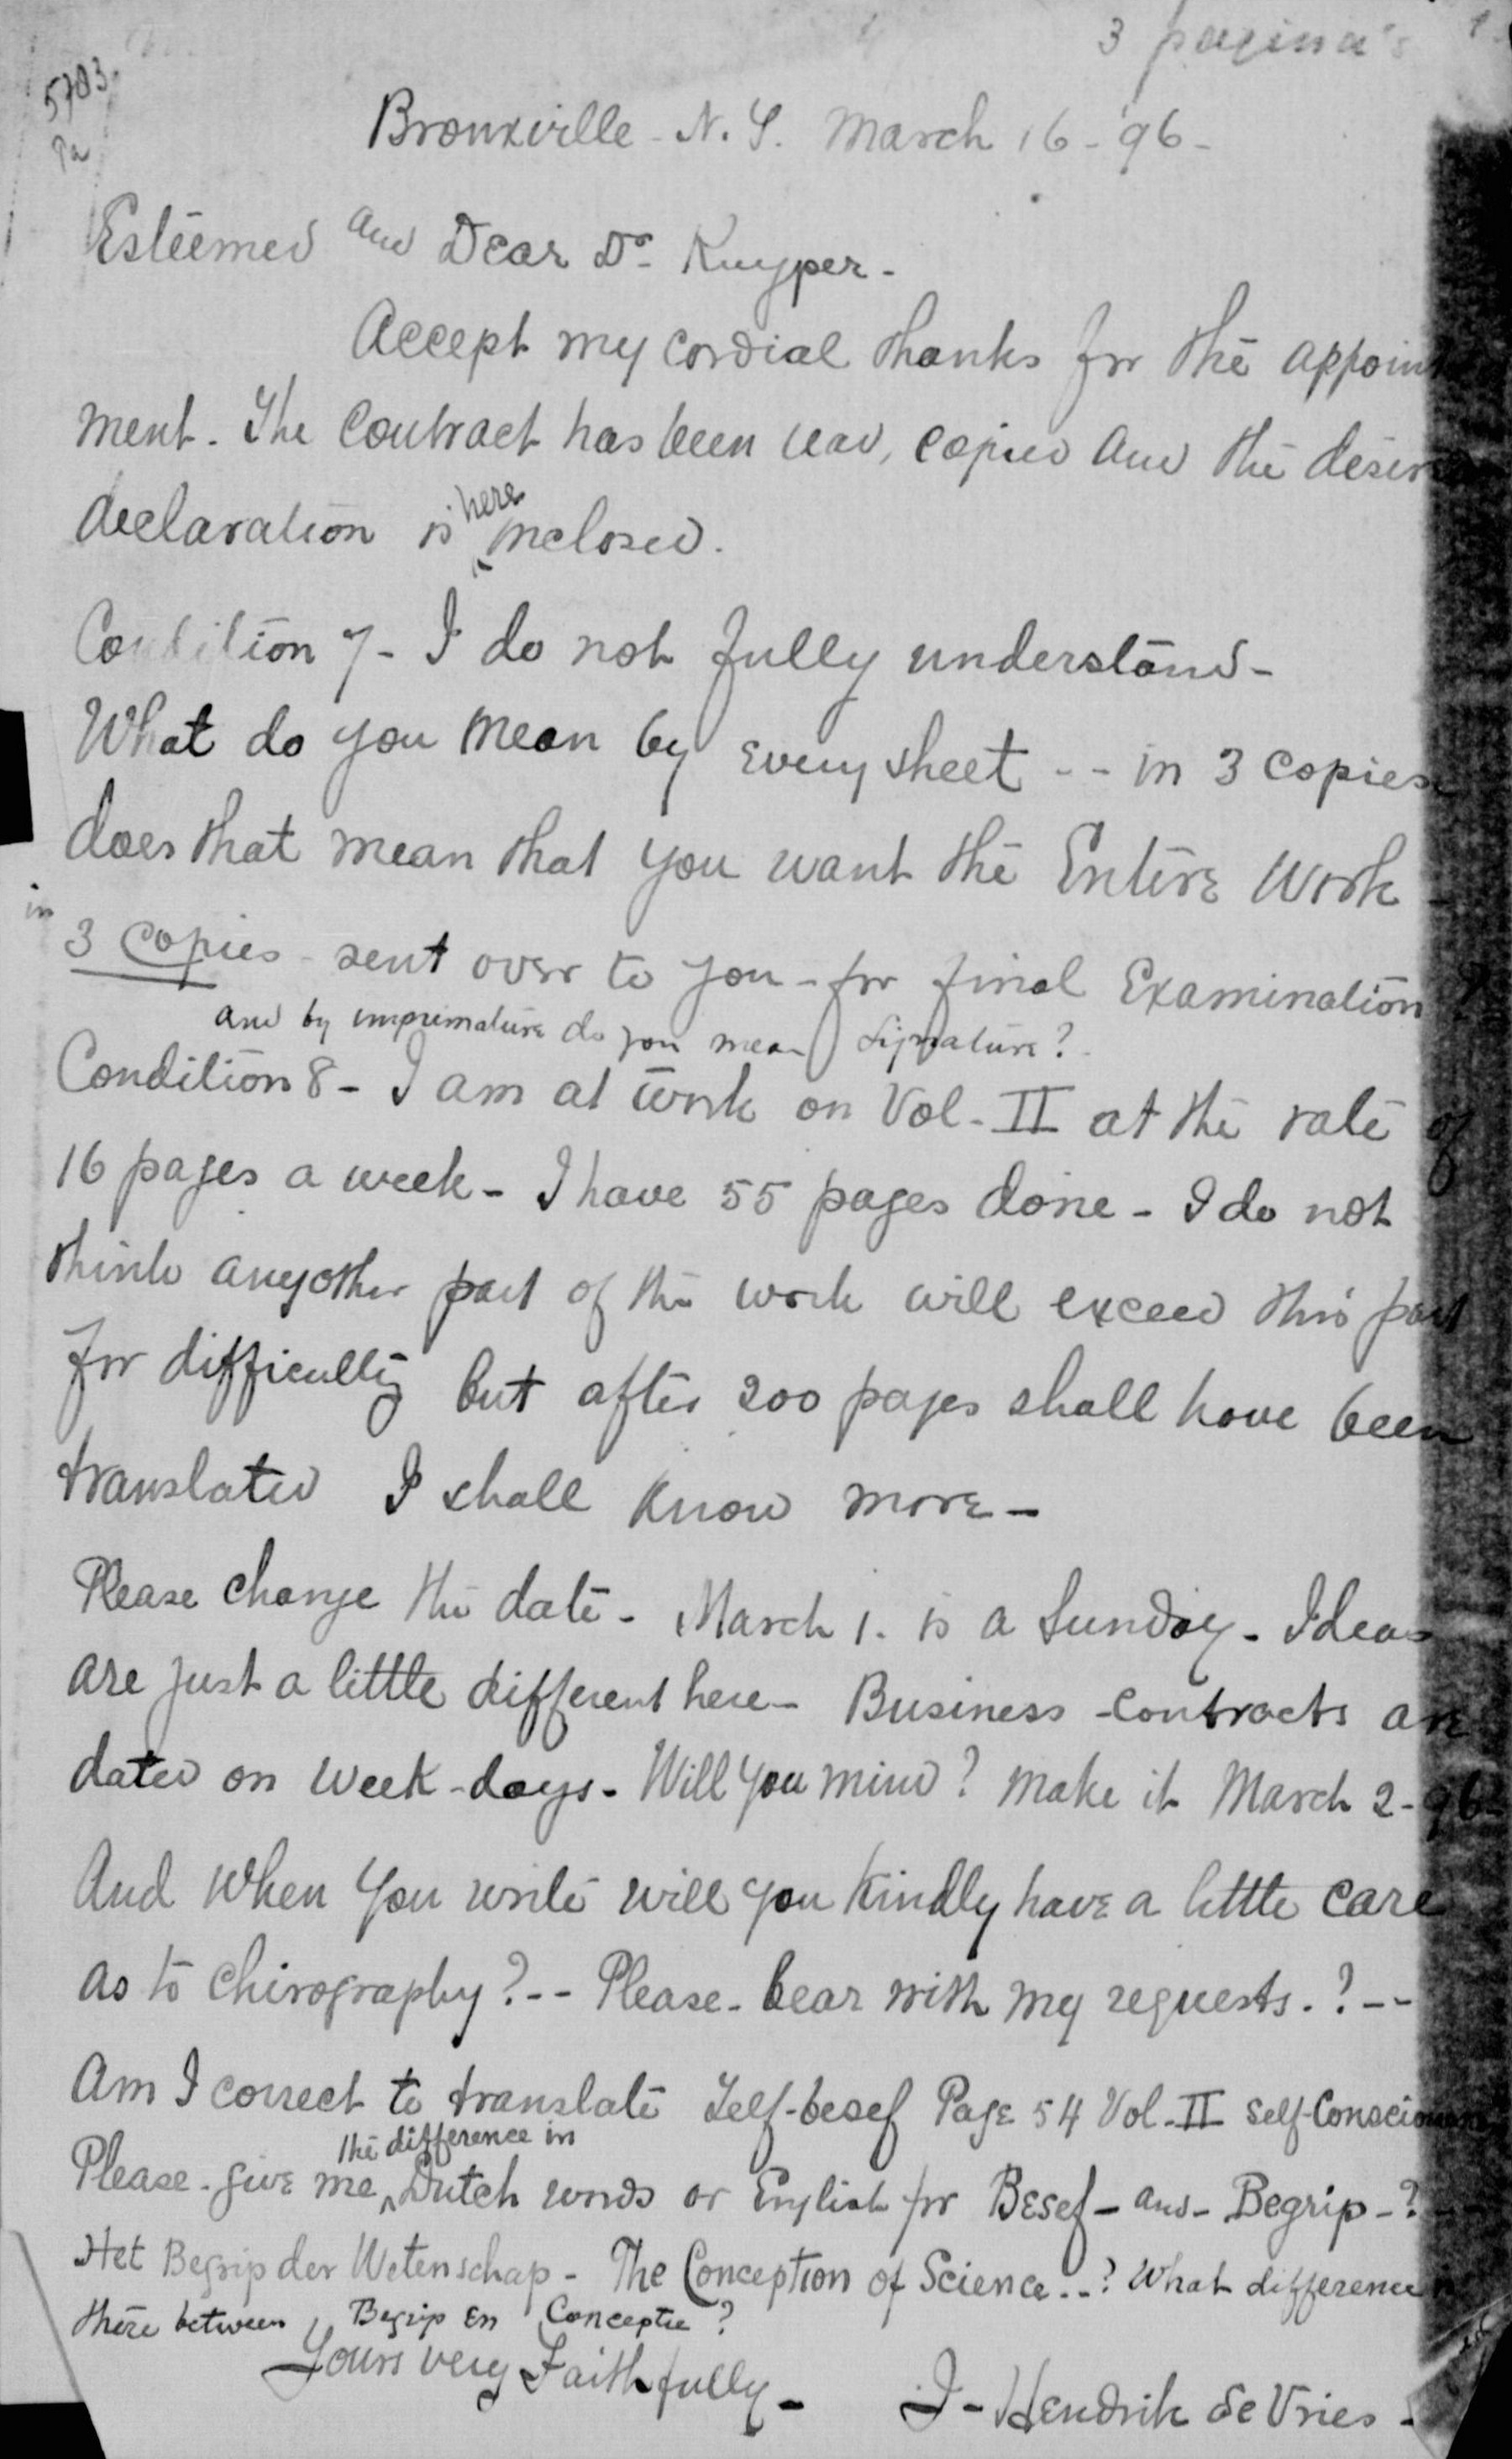 3 pagina's
5703
Bronxville - N. Y. March 16 - 96 -
Esteemed and Dear Dr. Kuyper -
Accept my cordial thanks for the appoint
ment. The Contract has been read, copied and the desired
declaration is here inclosed.
Condition 7 - I do not fully understand -
What do you mean by every sheet -- in 3 copies
does that mean that you want the Entire Work -
in 3 copies - sent over to you - for final Examination ?
and by imprimature do you mean signature?
Condition 8 - I am at work on Vol - II at the rate of
16 pages a week - I have 55 pages done - I do not
think any other part of the work will exceed this part
for difficulty but after 200 pages shall have been
translated I shall know more -
Please change the date - March 1. is a Sunday - Ideas
are just a little different here - Business - contracts are
dated on week - days - Will you mind? make it March 2 - 96 -
And when you write will you kindly have a little care
as to chirography? -- Please - bear with my requests. ? --
Am I correct to translate Zelf-besef Page 54 Vol - II Self-Consciousness
Please - give me the difference in Dutch words or English for Besef - and - Begrip - ?
Het Begrip der Wetenschap - The Conception of Science -- ? What difference is
there between, Begrip en Conceptie ?
Yours very Faithfully - J - Hendrik de Vries -